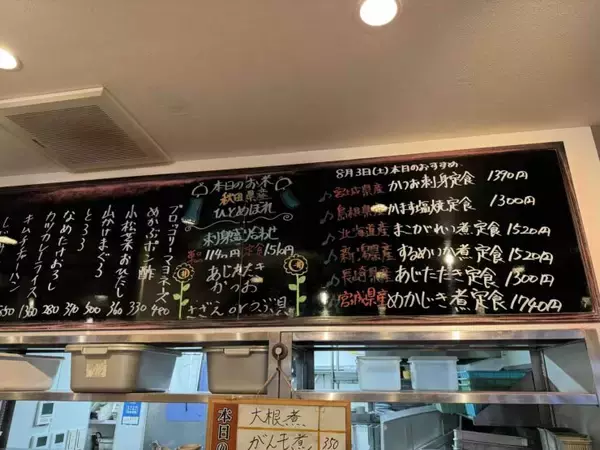 8月3日(土)本日のおすすめ
宮城県産 かつお刺身定食 1390円
島根県産 かます塩焼定食 1300円
北海道産 まこがれい煮定食 1520円
新潟県産 するめいか煮定食 1520円
長崎県産 あじたたき定食 1300円
宮城県産 めかじき煮定食 1740円
本日のお米
秋田県産
ひとめぼれ
刺身盛り合わせ
あじたたき
かつお
さざえ orつぶ貝
ブロッコリーマヨネーズ
めかぶポン酢 480
小松菜おひたし 330
山かけまぐろ 560
とろろ 500
なめたけおろし 370
カツカレーライス
キムチチャーハン
本日の
大根煮
がんも煮 350